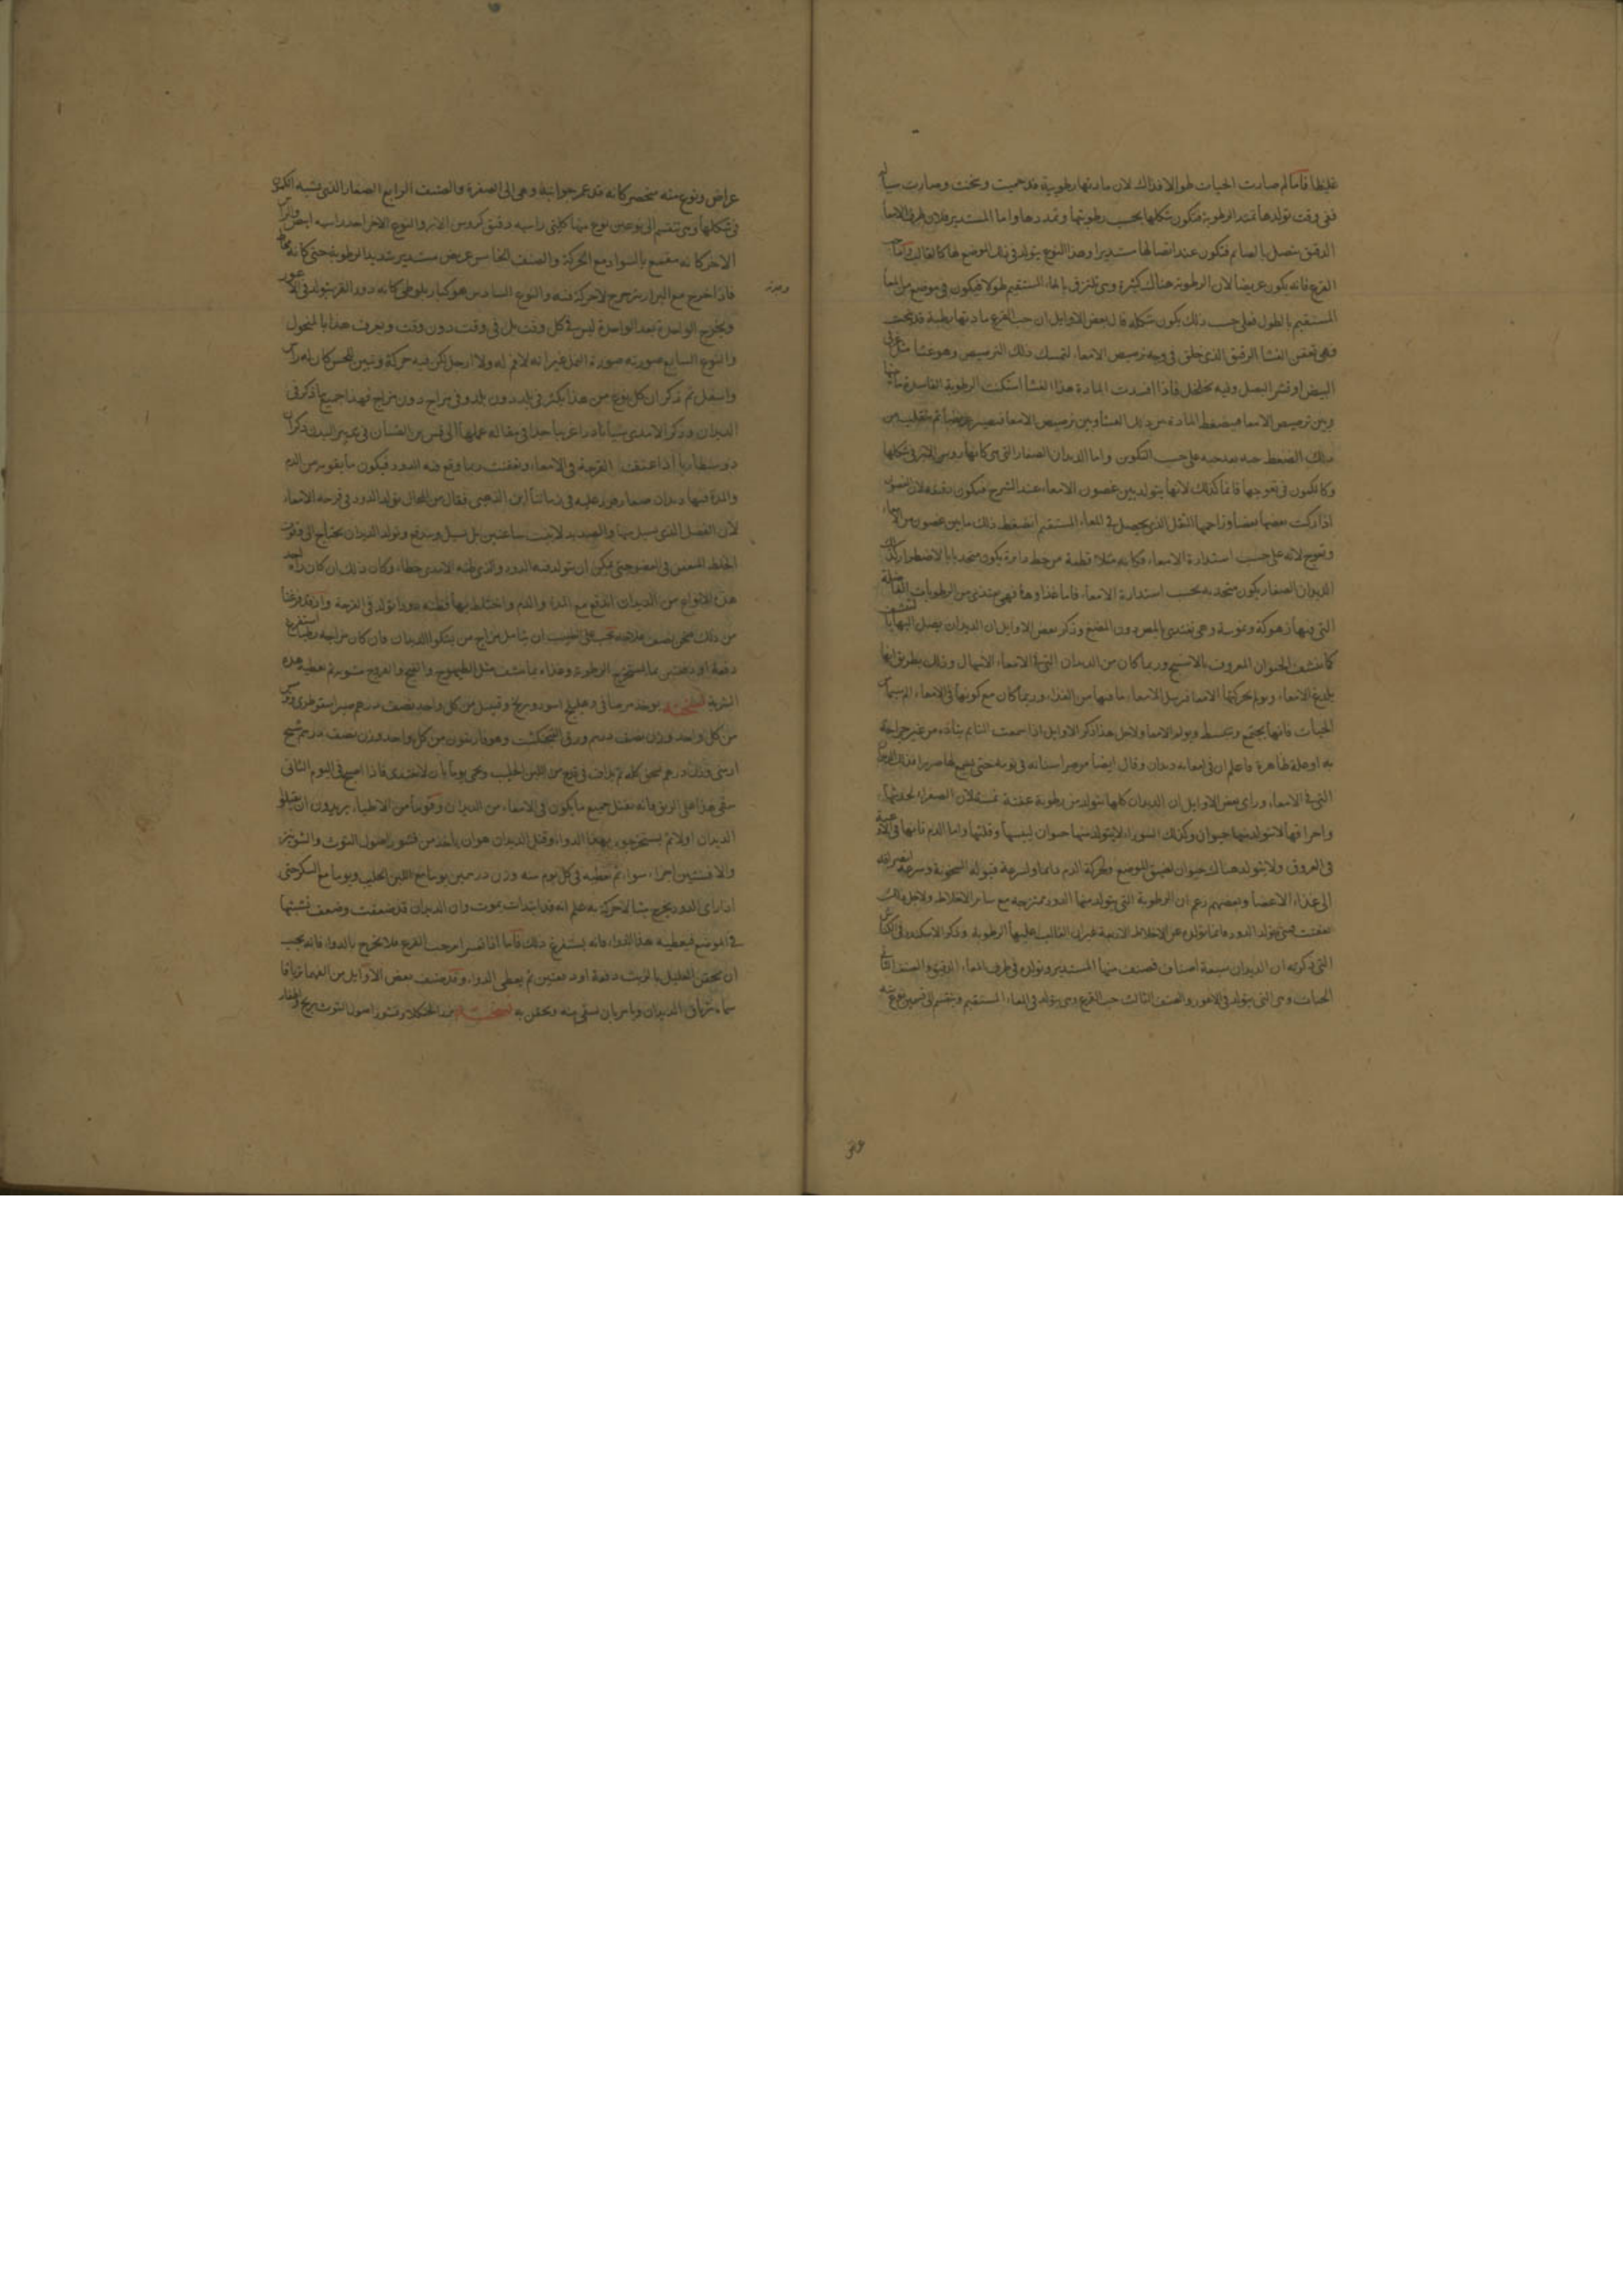 غليظا فاما لم صارت الحيات طوالا فذلك لان مادتها رطوبية قد حميت وسخنت وصارت
ففى وقت تولدها تمتد الرطوبة فتكون شكلها بحسب رطوبتها وتمددها واما المستدير فلان طرف الامعا
الدقيق متصل بالصايم فتكون عند اتصالها مستديرا وهذا النوع يتولد فى ذلك الموضع لها كالقالب واما حب
القرع فانه يكون عريضا لان الرطوبة هناك كثيرة وهى تلتزق بالمعاء المستقيم طولا فيكون فى موضع من المعا
المستقيم بالطول فعلى حسب ذلك يكون شكله قال بعض الاوايل ان حب القرع مادتها رطبة
فهى تعفن الغشا الرقيق الذى خلق فى وجه الامعاء لتمسك ذلك وهو غشا مثل غرقى
البيض او قشر البصل وفيه تخلخل فاذا افسدت المادة هذا الغشا الرطوبة الفاسدة
وبين الامعا فيضغط المادة من ذلك الغشا وبين الامعا
ذلك الضغط حبه بعد حبه على حسب التكون واما الديدان الصغار التى هى كانها روس الابر فى شكلها
وكما تكون فى تعوجها فانما كذلك لانها يتولد بين غضون الامعاء عند الشرج فيكون رقيقة لان الغضون
اذا ركب بعضها بعضا وزاحمها الثفل الذى يحصل فى المعاء المستقيم انضغط ذلك ما بين غضون من الامعاء
وتعوج لانه على حسب استدارة الامعاء فكانه مثلا قطعة من خط دايرة يكون متحدبا بالاضطرار كذلك
الديدان الصغار يكون متحدبه بحسب استدارة الامعاء فاما غذاوها فهى تغتذى من الرطوبات الفاضلة
التى فيها زهوكة ودسومة وهى تغتذى بالمص دون المضغ وذكر بعض الاوايل ان الديدان يصل اليها
كما تنشف الحيوان المعروف بالاسفنج وربما كان من الديدان التى فى الامعاء الاسهال وذلك بطريق انها
يلدغ الامعاء ويولم بحركتها الامعا فرسل الامعاء ما فيها من الغذاء وربما كان مع كونها فى الامعاء
الحيات فانها تجتمع وتنبسط ويولم الامعا ولاجل هذا ذكر الاوايل اذا سمعت النايم يتاذه من غير جراحة
به او علة ظاهرة فاعلم ان فى امعايه ديدان وقال ايضا من صر اسنانه فى نومه حتى يسمع لها صريرا فذلك للديدان
التى فى الامعاء وراى بعض الاوايل ان الديدان كلها يتولد من رطوبة عفنة لان الصفراء لحدتها
واحراقها لا يتولد منها حيوان وكذلك السوداء لا يتولد منها حيوان ليبسها وقلتها واما الدم فانها فى الاوعية
فى العروق ولا يتولد هناك حيوان لضيق الموضع ولحركة الدم دايما ولسرعة قبوله السخونة وسرعة انصرافه
الى غذاء الاعضا وبعضهم زعم ان الرطوبة التى يتولد منها الدود ممتزجه مع ساير الاخلاط ولاجل ذلك
عفنت حتى يتولد الدود فانما يتولد عن الاخلاط الاربعة غير ان الغالب عليها الرطوبة وذكر الاسكندر فى كناش
التى ذكرته ان الديدان سبعة اصناف فصنف منها المستدير ويتولد فى طرف المعاء الدقيق والصنف الثانى
الحيات وهى التى يتولد فى الاعور والصنف الثالث حب القرع وهى يتولد فى المعاء المستقيم وينقسم الى قسمين نوع منه
عراض ونوع منه منحصر كانه قد عمر جوانبه وهى الى الصفرة والصنف الرابع الصغار الذى يشبه الكمون
فى شكلها وهى تنقسم الى نوعين نوع منها كلتى راسيه دقيق كروس الابر والنوع الاخر احد راسيه ابيض وراس
الاخر كانه مقمع بالسواد مع الحركة والصنف الخامس عريض مستدير شديد الرطوبة حتى كانه مخاط
فاذا خرج مع البراز يترجرج لا حركة فيه والنوع السادس هو كبار بلوطى كانه دود القز يتولد فى الاعور
ويخرج الواحدة بعد الواحدة ليس فى كل وقت بل فى وقت دون وقت ويعرف هذا بالمنحول
والنوع السابع صورته صورة النمل غير انه لا فم له ولا ارجل لكن فيه حركة وتبين للحس كان له راس
واسفل ثم ذكر ان كل نوع من هذا يكثر فى بلد دون بلد وفى مزاج دون مزاج فهذا جميع ما ذكر فى
الديدان وذكر الامدى شيا نادرا غريبا جدا فى مقاله عملها الى قس بن القنان فى تدبير البدن ذكر ان
دوسنطاريا اذا عتقت القرحة فى الامعاء وعفنت ربما وقع فيه الدود فيكون ما يقومه من الدم
والمدة فيها ديدان صغار وهو رد عليه فى زماننا ابن الذهبى فقال من المحال تولد الدود فى قرحه الامعاء
لان الفضل الذى يسيل منها والصديد لا يثبت ساعتين بل تسيل ويندفع وتولد الديدان يحتاج الى وقوف
الخلط المتعفن فى العضو حتى يمكن ان يتولد فيه الدود والذى ظنه الامدى خطاء وكان ذلك ان كان راه احد
هذه الانواع من الديدان اندفع مع المدة والدم واختلط بها فظنه دودا تولد فى القرحة واذ قد فرغنا
من ذلك فنحن نصف علاجه يجب على الطبيب ان يتامل مزاج من يشكو الديدان فان كان مزاجه رطبا استفرغه
دفعة او دفعتين بما يستفرغ الرطوبة وغذاه بما ينشف مثل الطيهوج والقبج والفروج مشويه ثم يعطيه هذه
الشربة نسخته يوخذ سرخس وهليلج اسود وبرنج وقنبيل من كل واحد نصف درهم صبر اسقوطرى
من كل واحد وزن نصف درهم ورق الفنجنكشت وهو فاريقون من كل واحد وزن نصف درهم شيح
ارمنى وزن درهم يسحق كله ثم يداف فى قدح من اللبن الحليب ويحمى يوما بان لا يغتدى فاذا اصبح فى اليوم الثانى
سقى هذا على الريق فانه يقتل جميع ما يكون فى الامعاء من الديدان وقوما من الاطباء يريدون ان يقتلوا
الديدان اولا ثم يستخرجوه بهذا الدواء وقتل الديدان هو ان ياخذ من قشور اصول التوت والشونيز
والافسنتين اجزاء سواء ثم تعطيه فى كل يوم منه وزن درهمين يوما مع اللبن الحليب ويوما مع السكر حتى
اذا راى الدود يخرج ميتا لا حركة به علم انه قد ابتدات بموت وان الديدان قد ضعفت وضعف تشبثها
فى الموضع فيعطيه هذا الدواء فانه يستفرغ ذلك فاما اذا تعسر امر حب القرع فلا يخرج بالدواء فانه يجب
ان يحقن العليل بالزيت دفعة او دفعتين ثم يعطى الدواء وقد صنف بعض الاوايل من القدما ترياقا
سماه ترياق الديدان وامر بان يسقى منه ويحقن به نسخته قشور اصول التوت